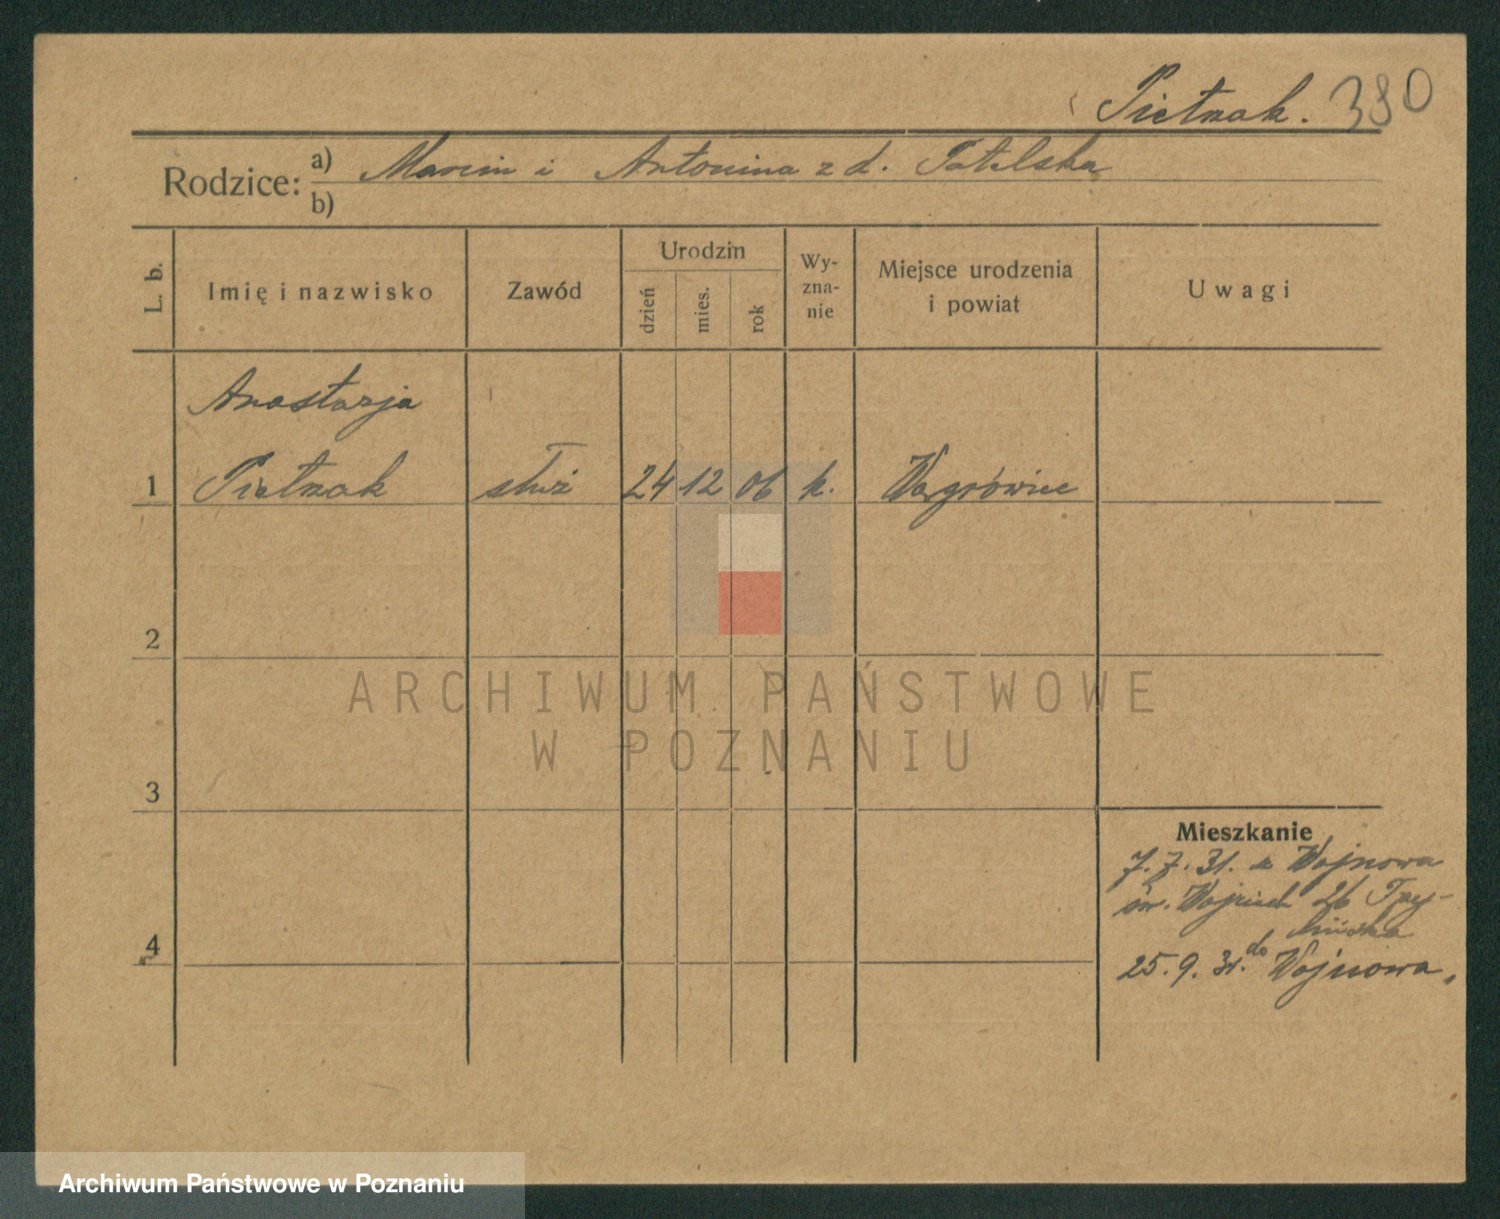 Pietrzak. 380
Rodzice: a) Marcin i Antonina z d. Patelska
b)
L. b. Imię i nazwisko Zawód Urodzin dzień mies. rok Wy-zna-nie Miejsce urodzenia i powiat Uwagi
Anastazja
1 Pietrzak służ 24 12 06 k. Wągrówiec
2
ARCHIWUM PAŃSTWOWE
W POZNANIU
3
Mieszkanie
7.7.31. z Wojnowa
św. Wojciech 26
4
25.9.31. do Wojnowa.
Archiwum Państwowe w Poznaniu